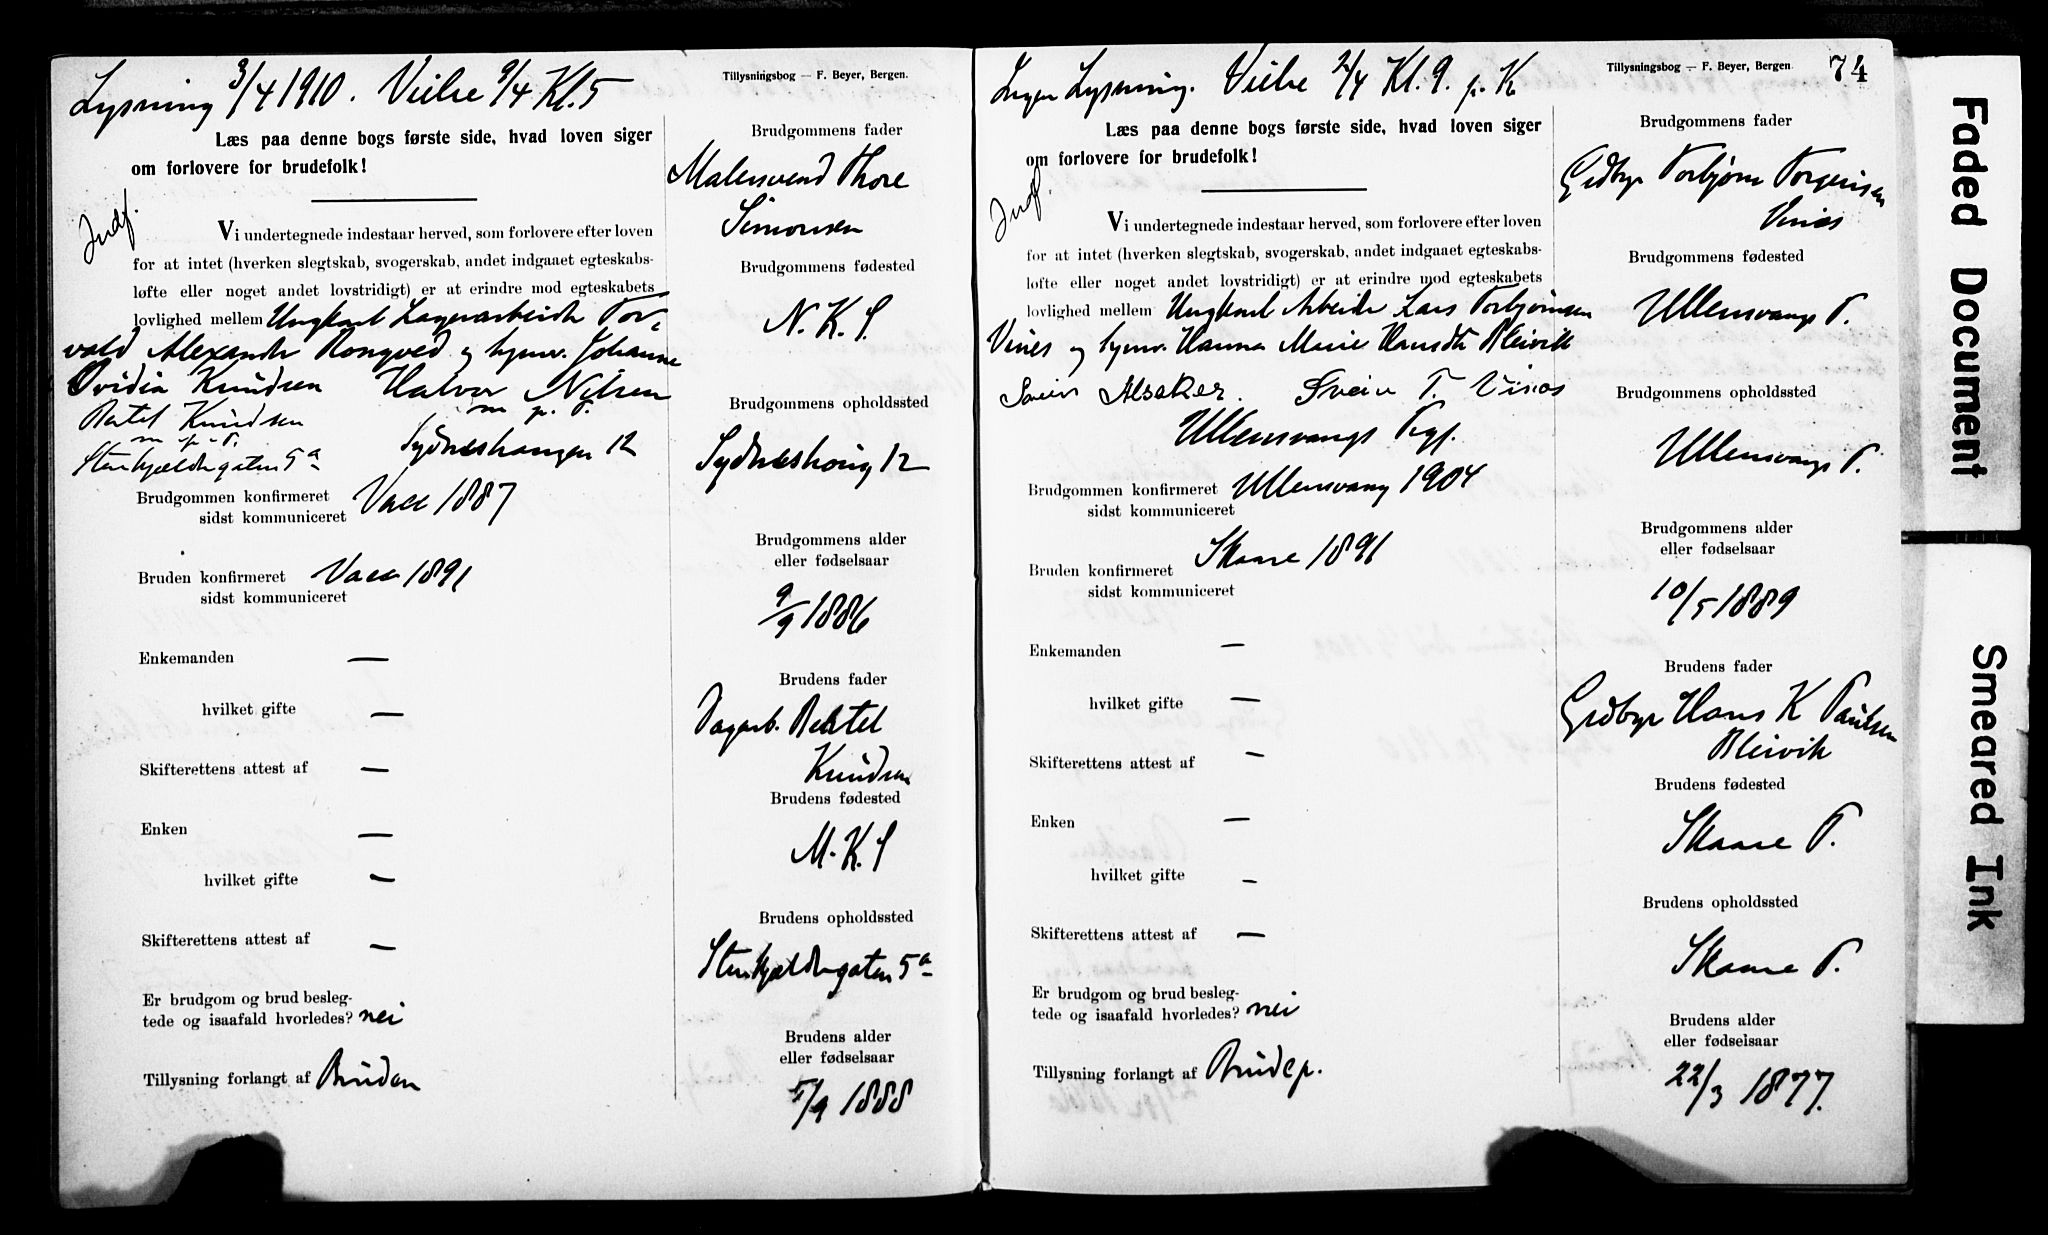 Lysning 3/4 1910. Vielse 9/4 Kl. 5
Tillysningsbog — F. Beyer, Bergen.
Læs paa denne bogs første side, hvad loven siger
om forlovere for brudefolk!
Indf.
Vi undertegnede indestaar herved, som forlovere efter loven
for at intet (hverken slegtskab, svogerskab, andet indgaaet egteskabs-
løfte eller noget andet lovstridigt) er at erindre mod egteskabets
lovlighed mellem Ungkarl Lagerarbeider Tor-
vald Alexander Rongved og Pigen Johanne
Ovidia Knudsen Halvor Nilsen
Bertel Knudsen m. p. P.
m. p. P. Sydneshaugen 12
Stenkjældergaten 5a
Brudgommen konfirmeret Vacc 1887
sidst kommuniceret
Bruden konfirmeret Vacc 1891
sidst kommuniceret
Enkemanden —
hvilket gifte —
Skifterettens attest af —
Enken —
hvilket gifte —
Skifterettens attest af —
Er brudgom og brud besleg-
tede og isaafald hvorledes? nei
Tillysning forlangt af Bruden
Brudgommens fader
Malersvend Thore
Simonsen
Brudgommens fødested
N. K. S
Brudgommens opholdssted
Sydneshaug 12
Brudgommens alder
eller fødselsaar
9/9 1886
Brudens fader
Dagarb. Bertel
Knudsen
Brudens fødested
M. K. S
Brudens opholdssted
Stenkjældergaten 5a
Brudens alder
eller fødselsaar
5/9 1888
Ingen Lysning. Vielse 2/4 Kl. 9. p. K
Tillysningsbog — F. Beyer, Bergen.
74
Læs paa denne bogs første side, hvad loven siger
om forlovere for brudefolk!
Indf.
Vi undertegnede indestaar herved, som forlovere efter loven
for at intet (hverken slegtskab, svogerskab, andet indgaaet egteskabs-
løfte eller noget andet lovstridigt) er at erindre mod egteskabets
lovlighed mellem Ungkarl Arbeider Lars Torbjørnsen
Vines og Pigen Hanna Marie Hansdtr Bleivik
Svein Alsaker. Svein T. Vines
Ullensvangs Prgj.
Brudgommen konfirmeret Ullensvang 1904
sidst kommuniceret
Bruden konfirmeret Skaare 1891
sidst kommuniceret
Enkemanden —
hvilket gifte —
Skifterettens attest af —
Enken —
hvilket gifte —
Skifterettens attest af —
Er brudgom og brud besleg-
tede og isaafald hvorledes? nei
Tillysning forlangt af Brudep.
Brudgommens fader
Grdbgr Torbjørn Torgeirsen
Vines
Brudgommens fødested
Ullensvangs P.
Brudgommens opholdssted
Ullensvangs P.
Brudgommens alder
eller fødselsaar
10/5 1889
Brudens fader
Grdbgr Hans K Paulsen
Bleivik
Brudens fødested
Skaare P.
Brudens opholdssted
Skaare P.
Brudens alder
eller fødselsaar
22/3 1877.
Faded Document
Smeared Ink